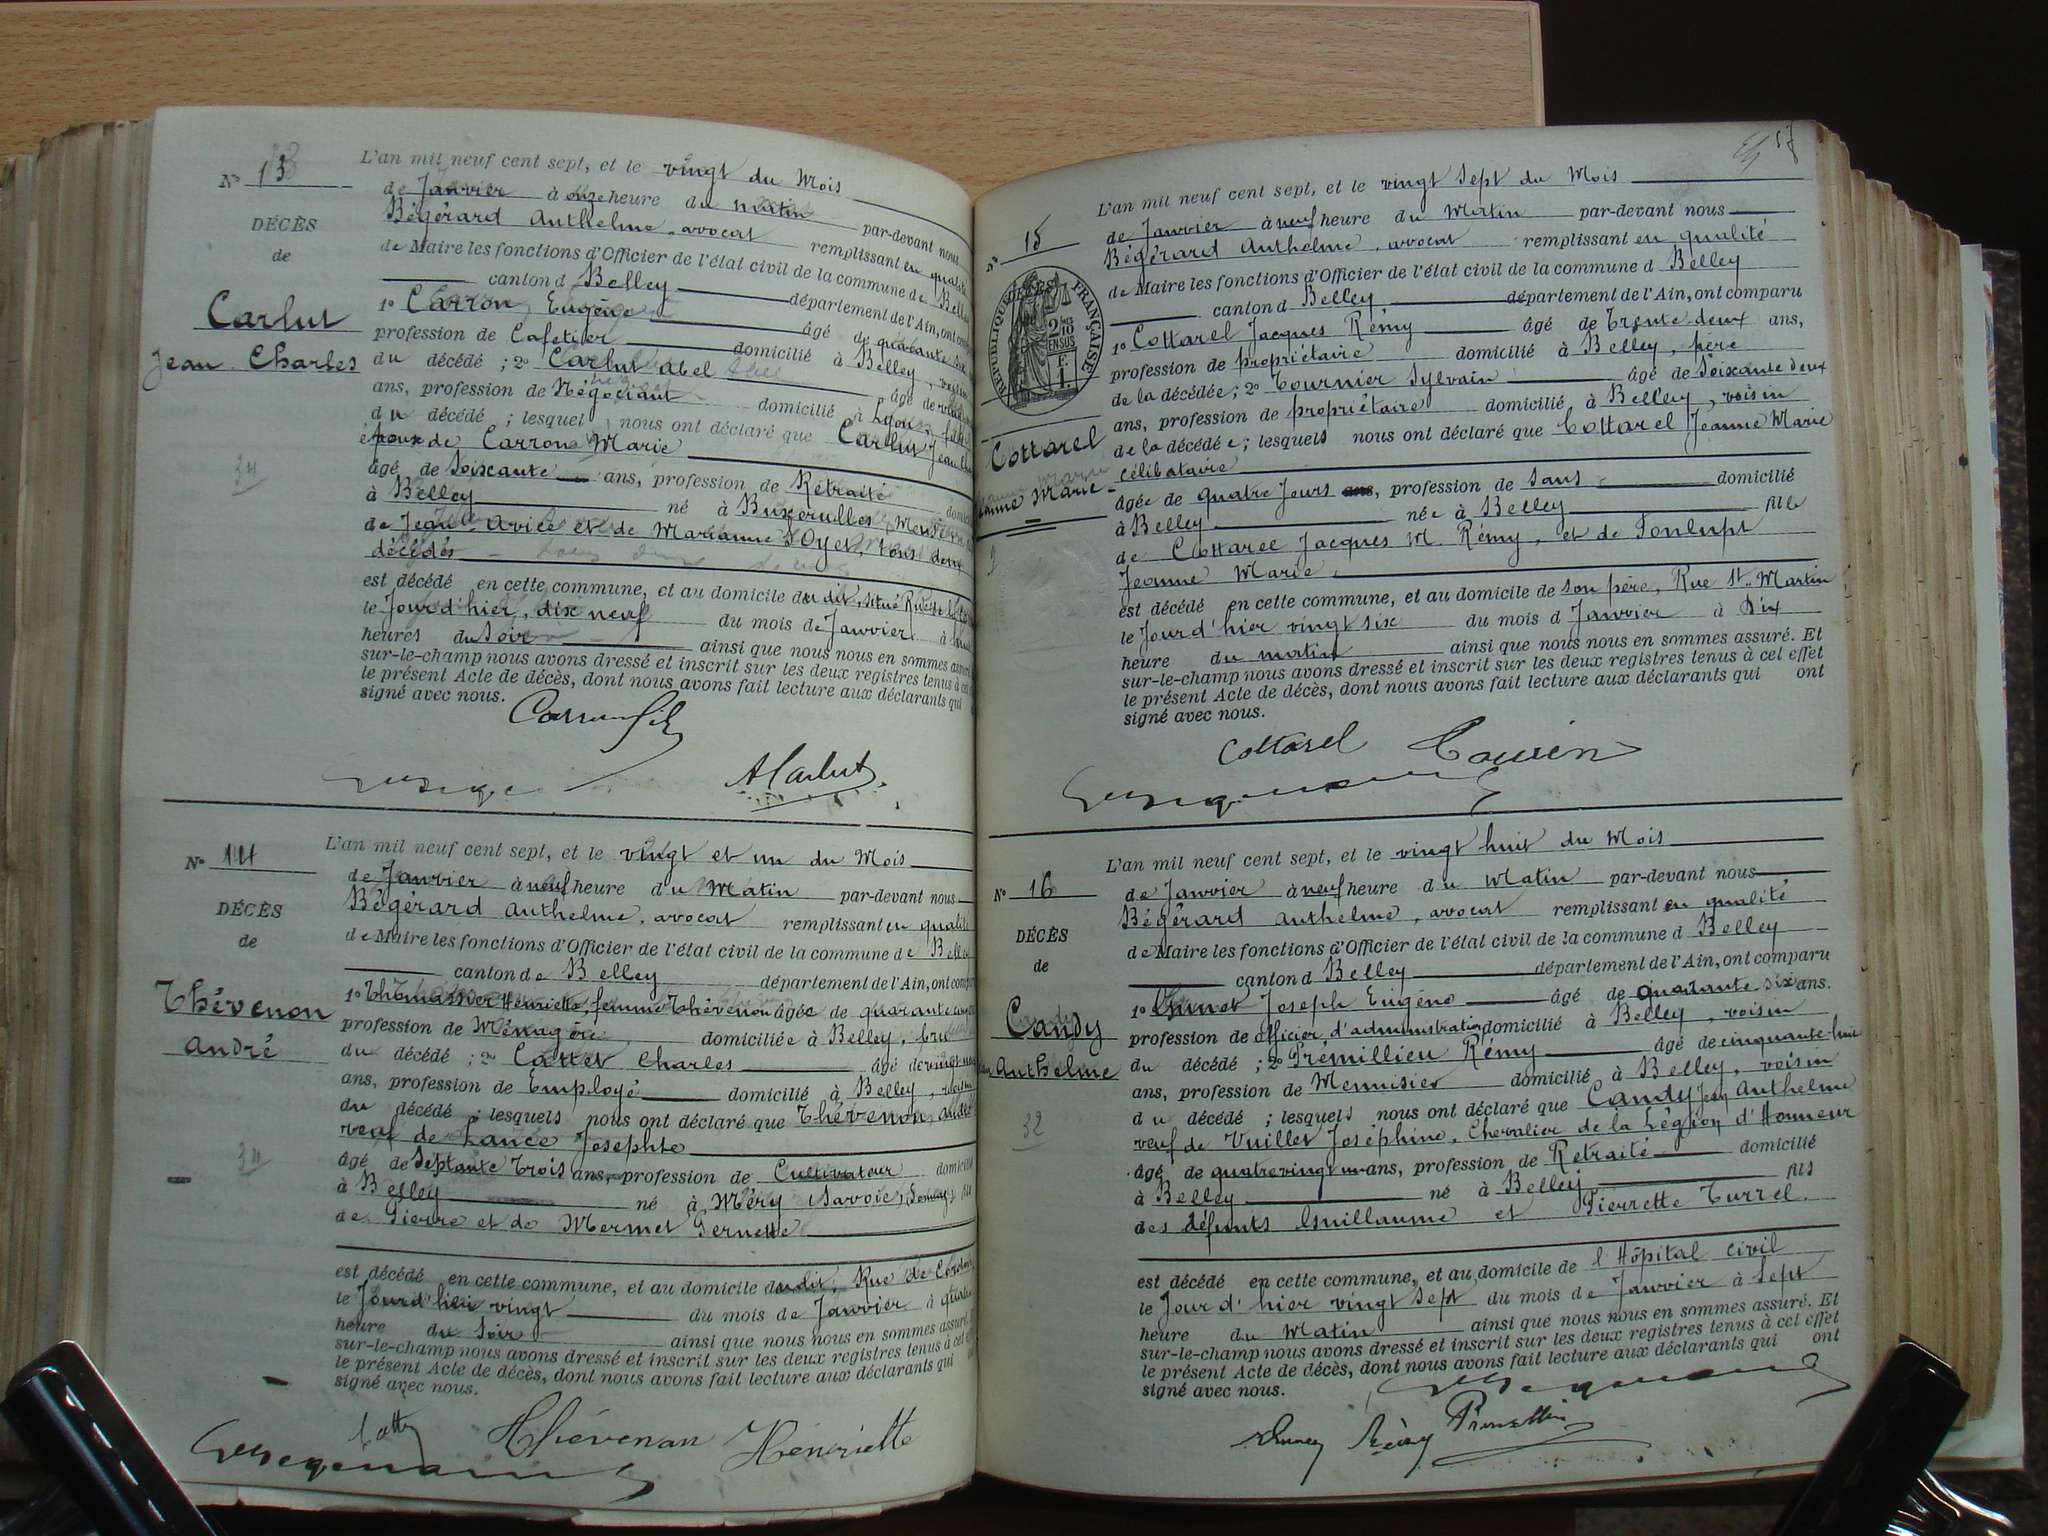 N° 13
DÉCÈS
de
Carlut
Jean Charles
L'an mil neuf cent sept, et le vingt du Mois
de Janvier à onze heure du matin par-devant nous
Bégérard Anthelme, avocat remplissant en qualité
de Maire les fonctions d'Officier de l'état civil de la commune de Belley
canton d Belley département de l'Ain, ont comparu
1° Carron Eugène âgé de quarante
profession de Cafetier domicilié à Belley, voisin
du décédé ; 2° Carlut Abel âgé de
ans, profession de Négociant domicilié à Lyon, fils
du décédé ; lesquel nous ont déclaré que Carlut Jean
époux de Carron Marie
âgé de Soixante ans, profession de Retraité
à Belley né à Buxerulles Meuse
de Jean Avice et de Marianne Oyet, tous deux
décédés
est décédé en cette commune, et au domicile du dit, situé Rue
le Jour d'hier, dix neuf du mois de Janvier à
heures du Soir ainsi que nous nous en sommes assuré
sur-le-champ nous avons dressé et inscrit sur les deux registres tenus à cet
le présent Acte de décès, dont nous avons fait lecture aux déclarants qui
signé avec nous.
Carron fils
A Carlut
N° 14
DÉCÈS
de
Thévenon
André
L'an mil neuf cent sept, et le vingt et un du Mois
de Janvier à neuf heure du Matin par-devant nous
Bégérard Anthelme, avocat remplissant en qualité
de Maire les fonctions d'Officier de l'état civil de la commune de Belley
canton de Belley département de l'Ain, ont comparu
1° Thomassier Henriette, femme Thévenon âgée de quarante
profession de Ménagère domiciliée à Belley, bru
du décédé ; 2° Cattet Charles âgé de vingt
ans, profession de Employé domicilié à Belley, voisin
du décédé ; lesquels nous ont déclaré que Thévenon André
veuf de Lancé Josephte
âgé de Septante Trois ans, profession de Cultivateur domicilié
à Belley né à Méry (Savoie) fils
de Pierre et de Mermet Pernette
est décédé en cette commune, et au domicile dudit, Rue de
le Jour d'hier vingt du mois de Janvier à quatre
heure du Soir ainsi que nous nous en sommes assuré.
sur-le-champ nous avons dressé et inscrit sur les deux registres tenus à cet effet
le présent Acte de décès, dont nous avons fait lecture aux déclarants qui
signé avec nous.
Thévenon Henriette
57
N° 15
RÉPUBLIQUE FRANÇAISE
Cottarel
Jeanne Marie
L'an mil neuf cent sept, et le vingt Sept du Mois
de Janvier à neuf heure du Matin par-devant nous
Bégérard Anthelme, avocat remplissant en qualité
de Maire les fonctions d'Officier de l'état civil de la commune d Belley
canton d Belley département de l'Ain, ont comparu
1° Cottarel Jacques Rémy âgé de Trente-deux ans,
profession de propriétaire domicilié à Belley, père
de la décédée ; 2° Tournier Sylvain âgé de Soixante deux
ans, profession de propriétaire domicilié à Belley, voisin
de la décédée ; lesquels nous ont déclaré que Cottarel Jeanne Marie
célibataire
âgée de quatre Jours ans, profession de Sans domicilié
à Belley née à Belley fille
de Cottarel Jacques M. Rémy, et de Ponlupt
Jeanne Marie
est décédé en cette commune, et au domicile de son père, Rue St-Martin
le Jour d'hier vingt six du mois d Janvier à Dix
heure du matin ainsi que nous nous en sommes assuré. Et
sur-le-champ nous avons dressé et inscrit sur les deux registres tenus à cet effet
le présent Acte de décès, dont nous avons fait lecture aux déclarants qui ont
signé avec nous.
Cottarel
N° 16
DÉCÈS
de
Candy
Jean Anthelme
32
L'an mil neuf cent sept, et le vingt huit du Mois
de Janvier à neuf heure du Matin par-devant nous
Bégérard Anthelme, avocat remplissant en qualité
de Maire les fonctions d'Officier de l'état civil de la commune d Belley
canton d Belley département de l'Ain, ont comparu
1° Joseph Eugène âgé de quarante six ans.
profession de officier d'administration domicilié à Belley, voisin
du décédé ; 2° Prémillieu Rémy âgé de cinquante huit
ans, profession de Menuisier domicilié à Belley, voisin
du décédé ; lesquels nous ont déclaré que Candy Jean Anthelme
veuf de Vuillet Joséphine, Chevalier de la Légion d'Honneur
âgé de quatre vingt un ans, profession de Retraité domicilié
à Belley né à Belley fils
des défunts Guillaume et Pierrette Turrel.
est décédé en cette commune, et au domicile de l'Hôpital civil
le Jour d'hier vingt Sept du mois de Janvier à Sept
heure du Matin ainsi que nous nous en sommes assuré. Et
sur-le-champ nous avons dressé et inscrit sur les deux registres tenus à cet effet
le présent Acte de décès, dont nous avons fait lecture aux déclarants qui ont
signé avec nous.